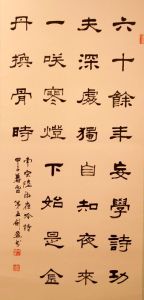 六十餘年妄學詩功
夫深處獨自知夜來
一咲寒燈下始是金
丹換骨時
南宋陸游夜吟詩